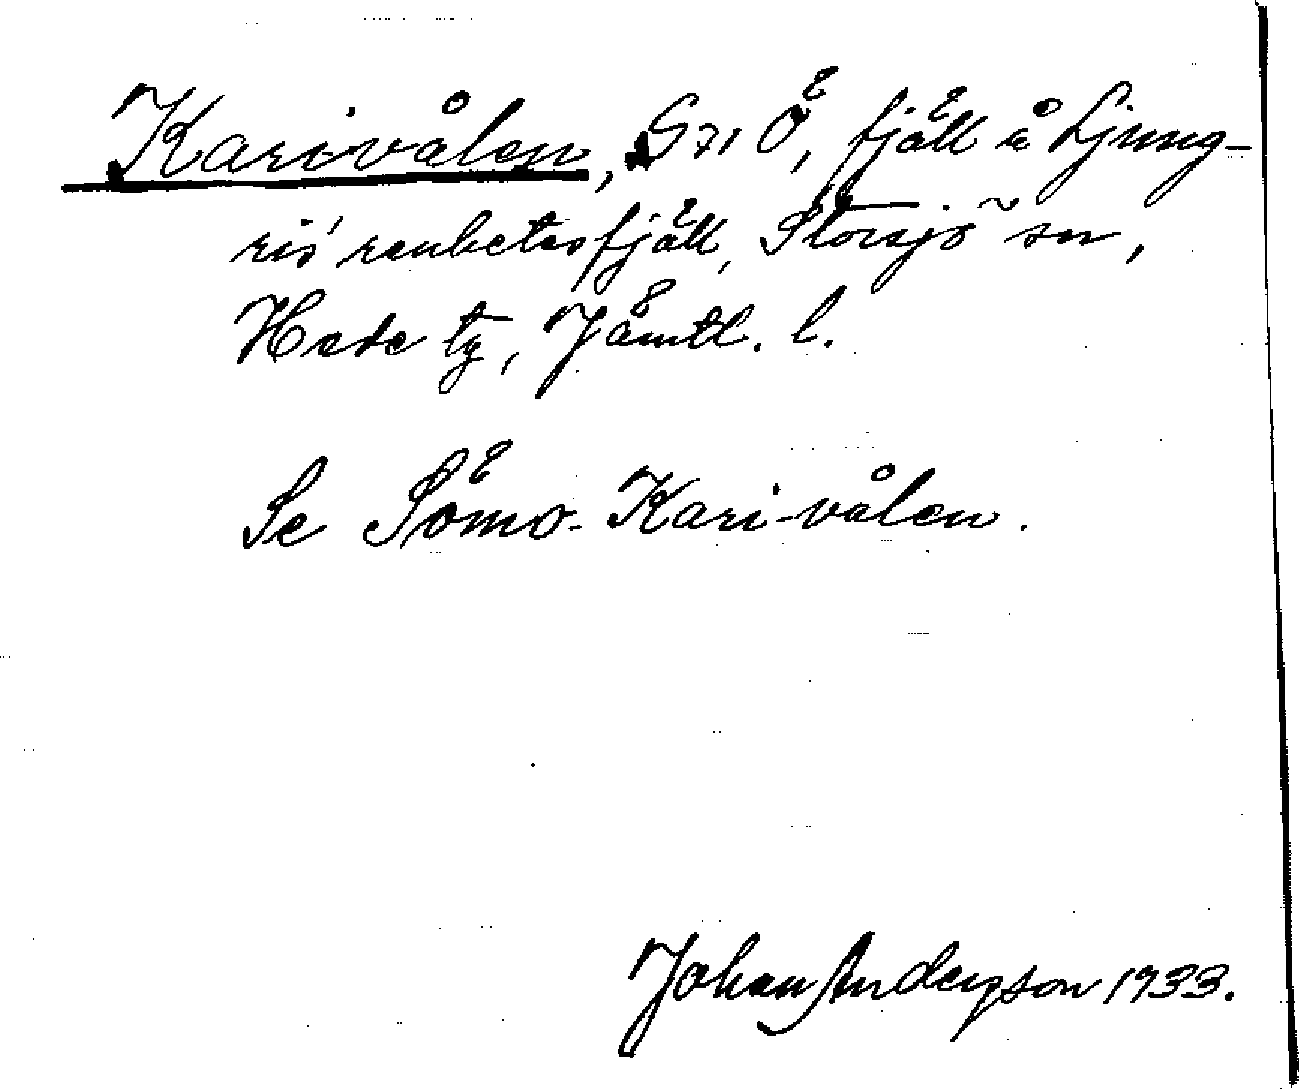 Karivålen, G 71 Ö, fjäll å Ljung-
ris' renbetesfjäll, Storsjö sn,
Hede tg, Jämtl. l.
Se Sömo-Kari-vålen.
Johan Anderzson 1933.